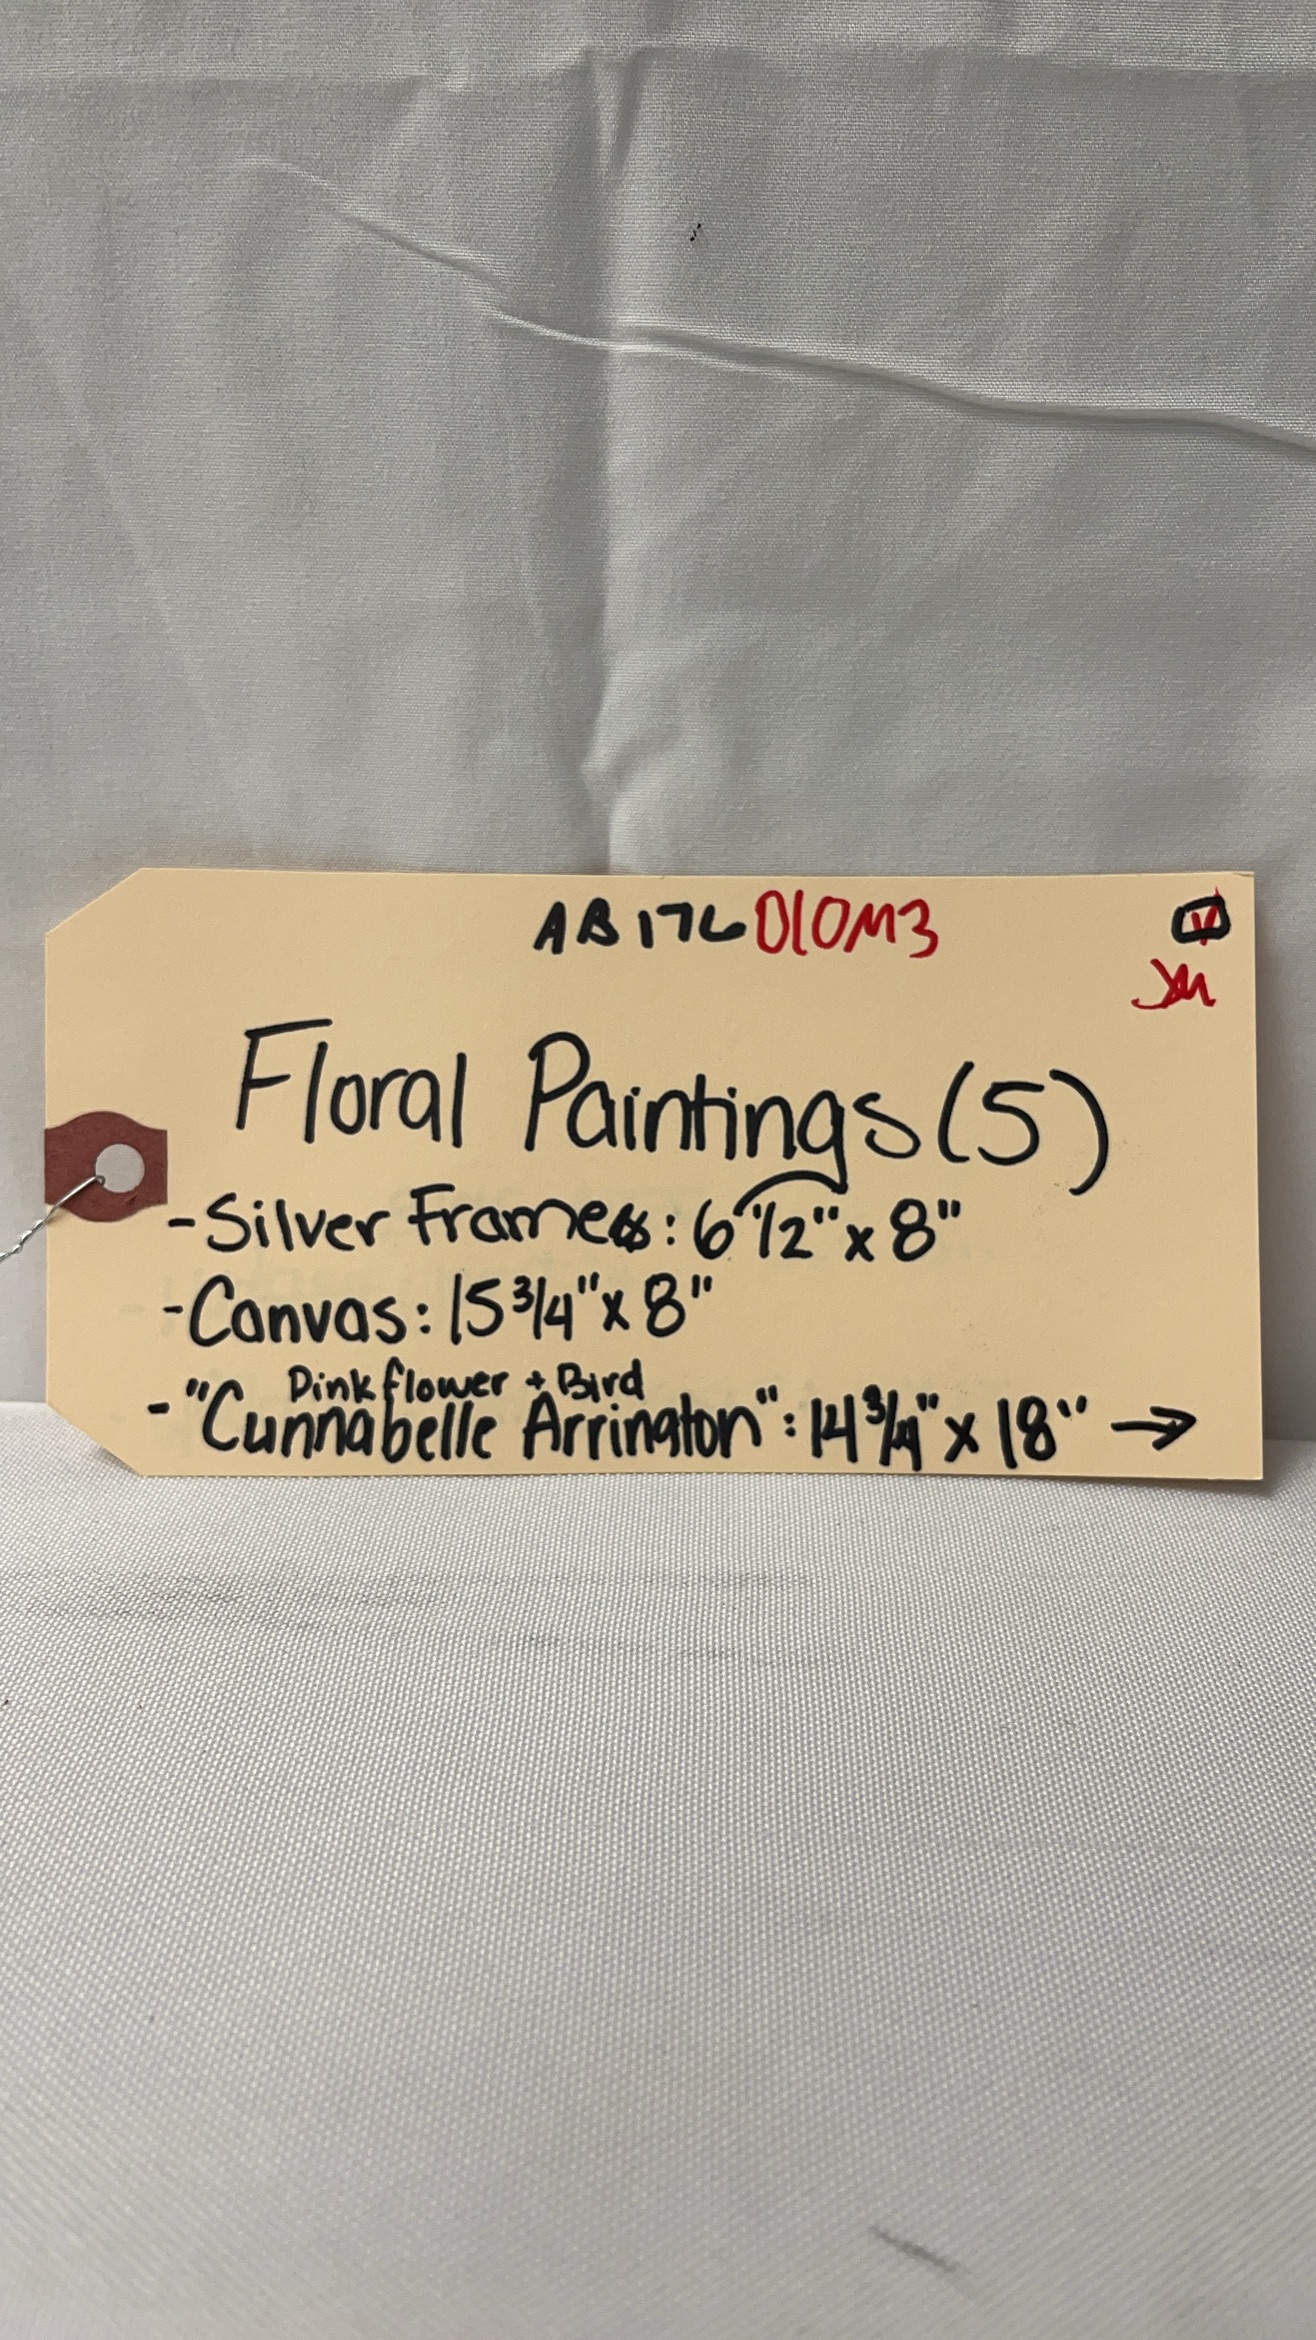 AB176 D10M3
Floral Paintings (5)
- Silver Frames: 6 1/2" x 8"
- Canvas: 15 3/4" x 8"
Pink flower + Bird
- "Cunnabelle Arrington": 14 3/4" x 18" →